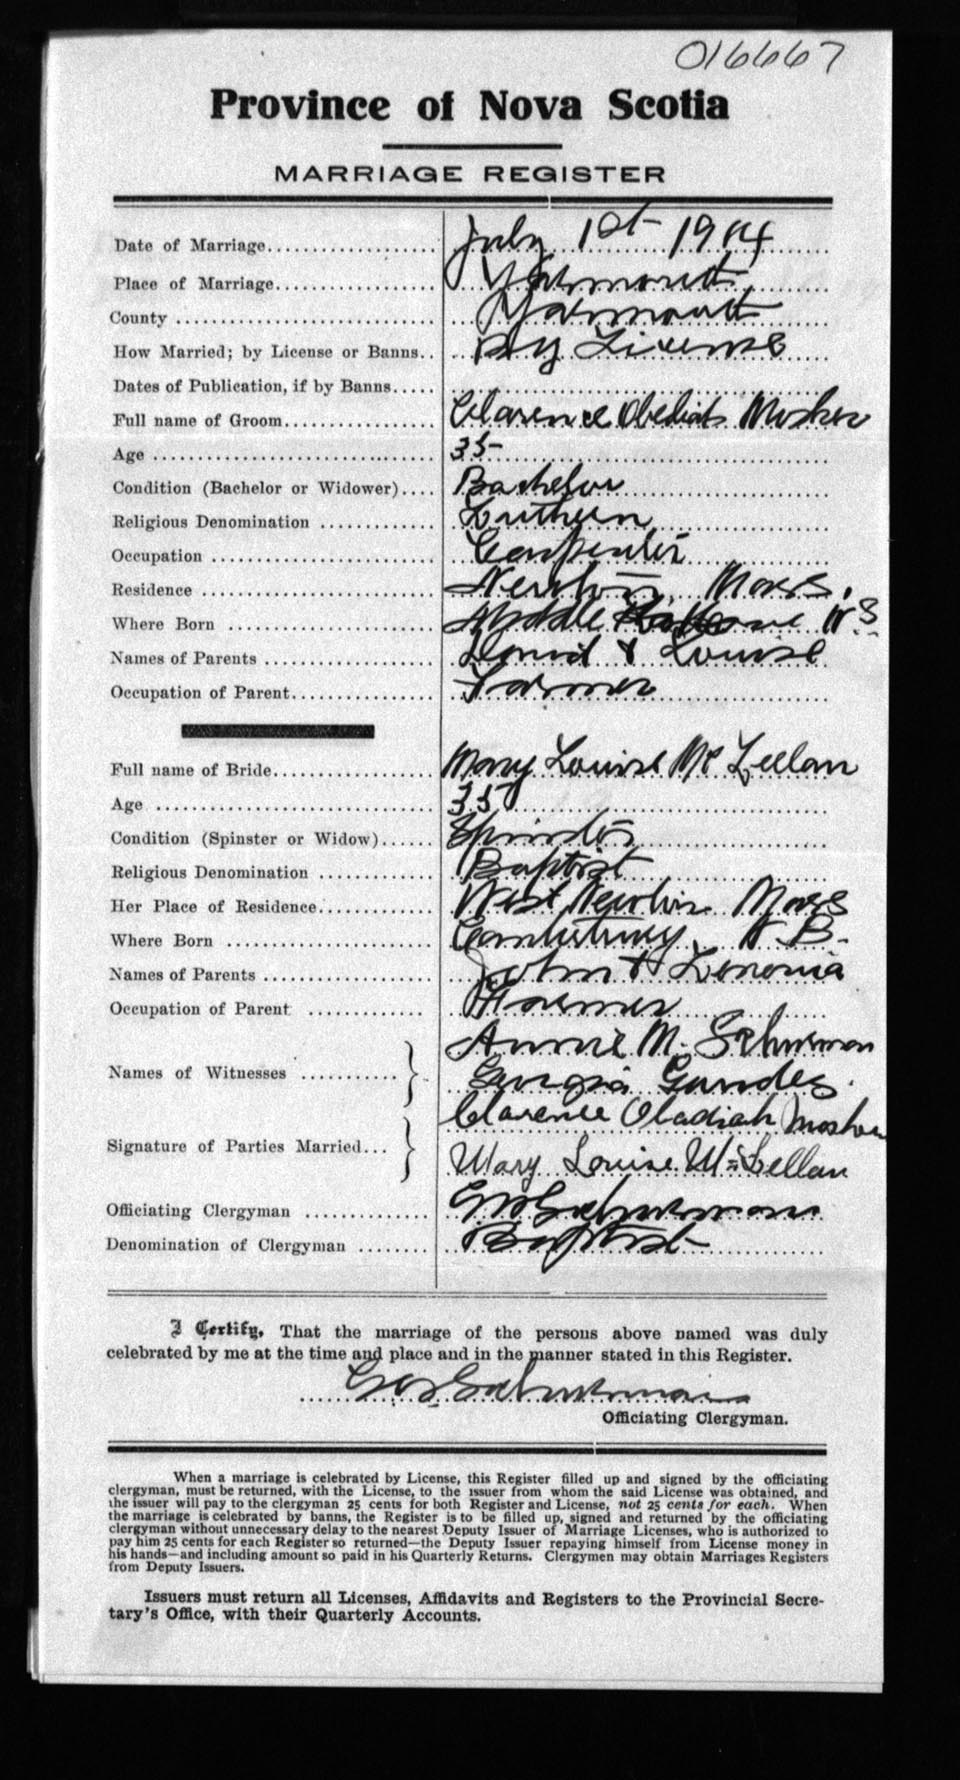 016667
Province of Nova Scotia
MARRIAGE REGISTER
Date of Marriage................... July 1st 1914
Place of Marriage.................. Yarmouth
County ............................ Yarmouth
How Married; by License or Banns.. By License
Dates of Publication, if by Banns.....
Full name of Groom................. Clarence Obediah Mosher
Age ............................... 35
Condition (Bachelor or Widower).... Bachelor
Religious Denomination ............ Lutheran
Occupation ........................ Carpenter
Residence ......................... Newton, Mass.
Where Born ........................ Middle N S
Names of Parents .................. David & Louise
Occupation of Parent............... Farmer
Full name of Bride................. Mary Louise Mc Lellan
Age ............................... 35
Condition (Spinster or Widow)...... Spinster
Religious Denomination ............ Baptist
Her Place of Residence............. West Newton Mass
Where Born ........................ Canterbury, N.B.
Names of Parents .................. John & Lenonia
Occupation of Parent .............. Farmer
Names of Witnesses ........... Annie M. Schurman
Georgia
Signature of Parties Married... Clarence Obadiah Mosher
Mary Louise McLellan
Officiating Clergyman ............. Schurman
Denomination of Clergyman ........ Baptist
I Certify, That the marriage of the persons above named was duly
celebrated by me at the time and place and in the manner stated in this Register.
Schurman
Officiating Clergyman.
When a marriage is celebrated by License, this Register filled up and signed by the officiating
clergyman, must be returned, with the License, to the issuer from whom the said License was obtained, and
the issuer will pay to the clergyman 25 cents for both Register and License, not 25 cents for each. When
the marriage is celebrated by banns, the Register is to be filled up, signed and returned by the officiating
clergyman without unnecessary delay to the nearest Deputy Issuer of Marriage Licenses, who is authorized to
pay him 25 cents for each Register so returned—the Deputy Issuer repaying himself from License money in
his hands—and including amount so paid in his Quarterly Returns. Clergymen may obtain Marriages Registers
from Deputy Issuers.
Issuers must return all Licenses, Affidavits and Registers to the Provincial Secre-
tary's Office, with their Quarterly Accounts.